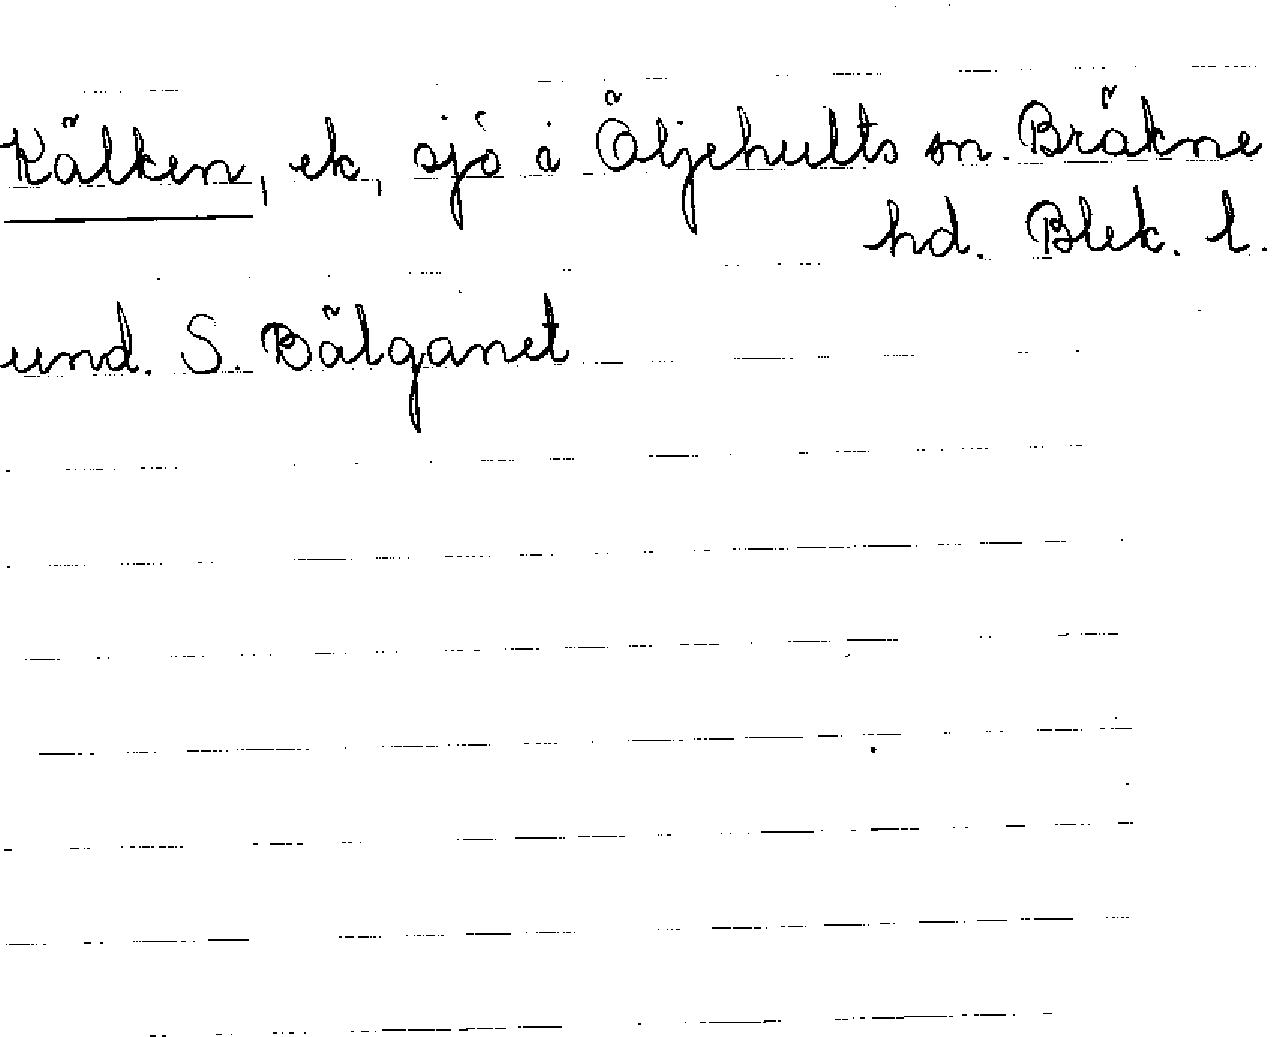 Kälken, ek, sjö i Öljehults sn. Bräkne
hd. Blek. l.
und. S. Bälganet